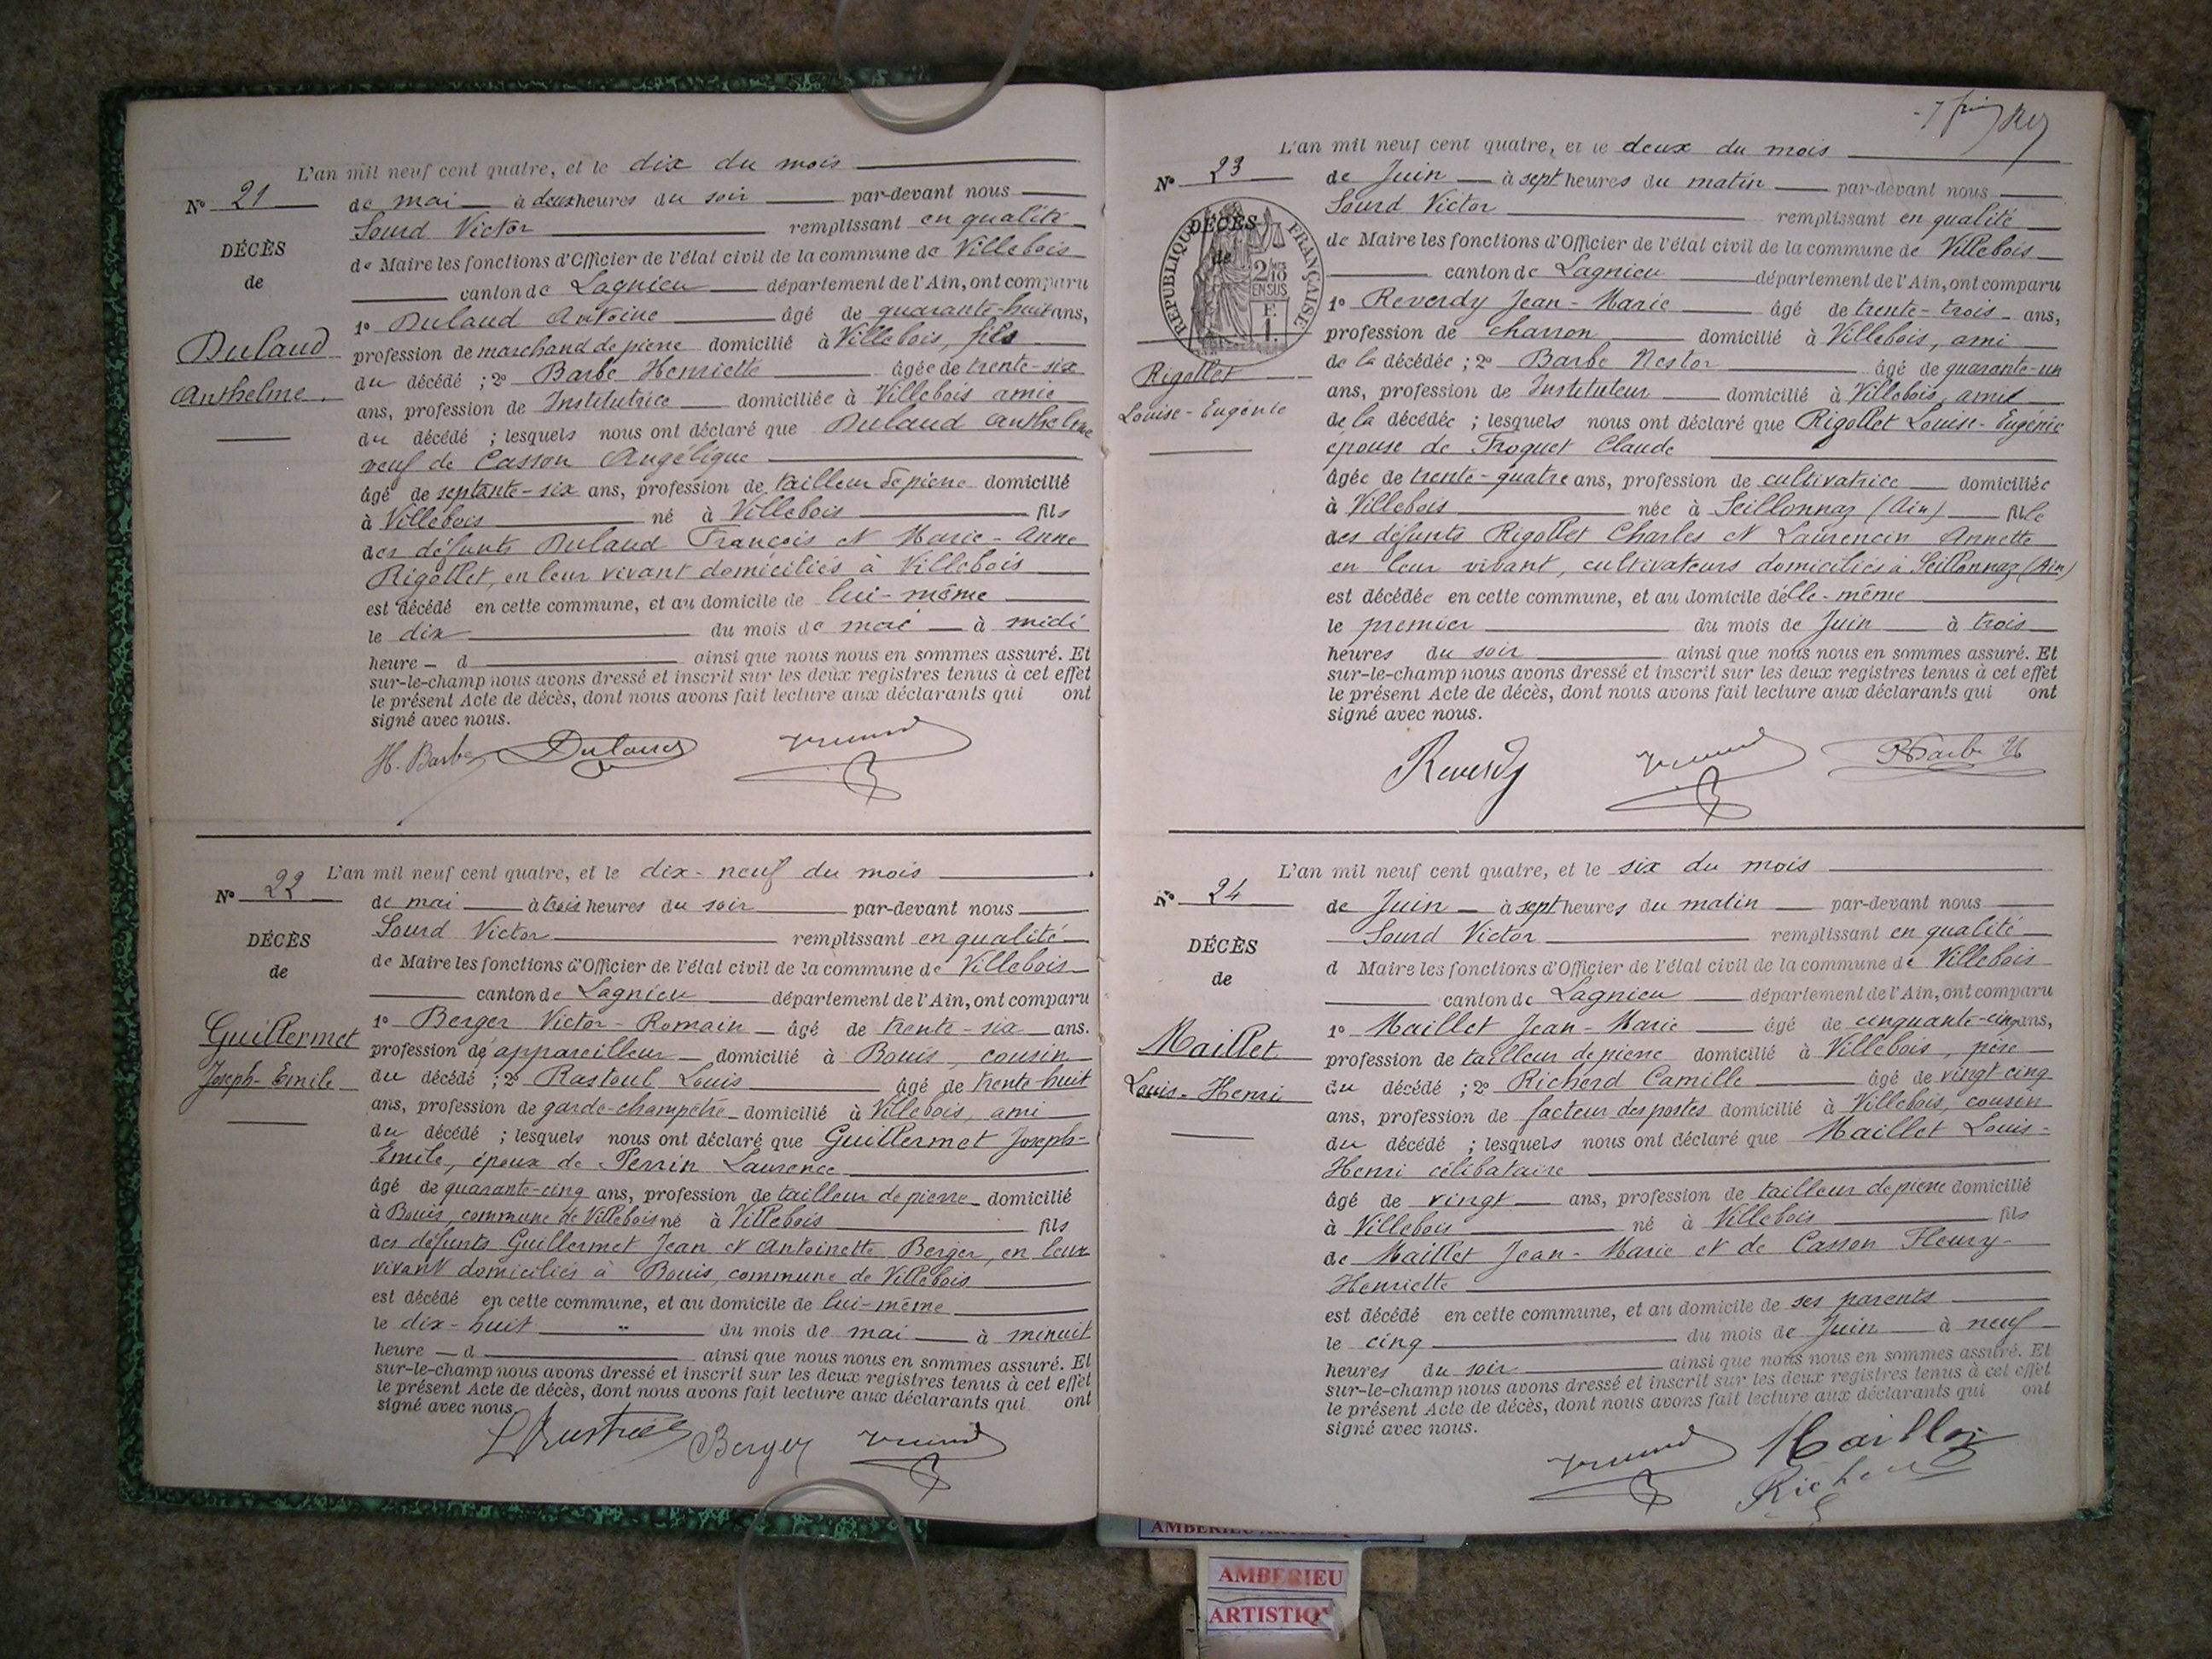 L'an mil neuf cent quatre, et le dix du mois
N° 21
de mai à deux heures du soir par-devant nous
Sourd Victor remplissant en qualité
DÉCÈS
de
de Maire les fonctions d'Officier de l'état civil de la commune de Villebois
canton de Lagnieu département de l'Ain, ont comparu
1° Dulaud Antoine âgé de quarante-huit ans,
Dulaud
Anthelme.
profession de marchand de pierre domicilié à Villebois, fils
du décédé ; 2° Barbe Henriette âgée de trente-six
ans, profession de Institutrice domiciliée à Villebois amie
du décédé ; lesquels nous ont déclaré que Dulaud Anthelme
veuf de Casson Angélique
âgé de septante-six ans, profession de tailleur de pierre domicilié
à Villebois né à Villebois fils
des défunts Dulaud François et Marie-Anne
Rigollet, en leur vivant domiciliés à Villebois
est décédé en cette commune, et au domicile de lui-même
le dix du mois de mai à midi
heure d ainsi que nous nous en sommes assuré. Et
sur-le-champ nous avons dressé et inscrit sur les deux registres tenus à cet effet
le présent Acte de décès, dont nous avons fait lecture aux déclarants qui ont
signé avec nous.
H. Barbe Dulaud
L'an mil neuf cent quatre, et le dix-neuf du mois
N° 22
de mai à trois heures du soir par-devant nous
Sourd Victor remplissant en qualité
DÉCÈS
de
de Maire les fonctions d'Officier de l'état civil de la commune de Villebois
canton de Lagnieu département de l'Ain, ont comparu
1° Berger Victor-Romain âgé de trente-six ans.
Guillermet
Joseph-Emile
profession de appareilleur domicilié à Bouis, cousin
du décédé ; 2° Rastoul Louis âgé de trente-huit
ans, profession de garde-champêtre domicilié à Villebois, ami
du décédé ; lesquels nous ont déclaré que Guillermet Joseph-
Emile, époux de Perrin Laurence
âgé de quarante-cinq ans, profession de tailleur de pierre domicilié
à Bouis, commune de Villebois né à Villebois fils
des défunts Guillermet Jean et Antoinette Berger, en leur
vivant domiciliés à Bouis, commune de Villebois
est décédé en cette commune, et au domicile de lui-même
le dix-huit du mois de mai à minuit
heure d ainsi que nous nous en sommes assuré. Et
sur-le-champ nous avons dressé et inscrit sur les deux registres tenus à cet effet
le présent Acte de décès, dont nous avons fait lecture aux déclarants qui ont
signé avec nous.
Berger
L'an mil neuf cent quatre, et le deux du mois
N° 23
de Juin à sept heures du matin par-devant nous
Sourd Victor remplissant en qualité
DÉCÈS
de
RÉPUBLIQUE FRANÇAISE
de Maire les fonctions d'Officier de l'état civil de la commune de Villebois
canton de Lagnieu département de l'Ain, ont comparu
1° Reverdy Jean-Marie âgé de trente-trois ans,
profession de charron domicilié à Villebois, ami
Rigollet
Louise-Eugénie
de la décédée ; 2° Barbe Nestor âgé de quarante-un
ans, profession de Instituteur domicilié à Villebois, ami
de la décédée ; lesquels nous ont déclaré que Rigollet Louise-Eugénie
épouse de Froquet Claude
âgée de trente-quatre ans, profession de cultivatrice domiciliée
à Villebois née à Seillonnaz (Ain) fille
des défunts Rigollet Charles et Laurencin Annette
en leur vivant, cultivateurs domiciliés à Seillonnaz (Ain)
est décédée en cette commune, et au domicile d'elle-même
le premier du mois de Juin à trois
heures du soir ainsi que nous nous en sommes assuré. Et
sur-le-champ nous avons dressé et inscrit sur les deux registres tenus à cet effet
le présent Acte de décès, dont nous avons fait lecture aux déclarants qui ont
signé avec nous.
Reverdy
L'an mil neuf cent quatre, et le six du mois
N° 24
de Juin à sept heures du matin par-devant nous
Sourd Victor remplissant en qualité
DÉCÈS
de
d Maire les fonctions d'Officier de l'état civil de la commune de Villebois
canton de Lagnieu département de l'Ain, ont comparu
1° Maillet Jean-Marie âgé de cinquante-cinq ans,
Maillet
Louis-Henri
profession de tailleur de pierre domicilié à Villebois, père
du décédé ; 2° Richerd Camille âgé de vingt-cinq
ans, profession de facteur des postes domicilié à Villebois, cousin
du décédé ; lesquels nous ont déclaré que Maillet Louis-
Henri célibataire
âgé de vingt ans, profession de tailleur de pierre domicilié
à Villebois né à Villebois fils
de Maillet Jean-Marie et de Casson Fleury-
Henriette
est décédé en cette commune, et au domicile de ses parents
le cinq du mois de Juin à neuf
heures du soir ainsi que nous nous en sommes assuré. Et
sur-le-champ nous avons dressé et inscrit sur les deux registres tenus à cet effet
le présent Acte de décès, dont nous avons fait lecture aux déclarants qui ont
signé avec nous.
AMBERIEU
ARTISTIQ